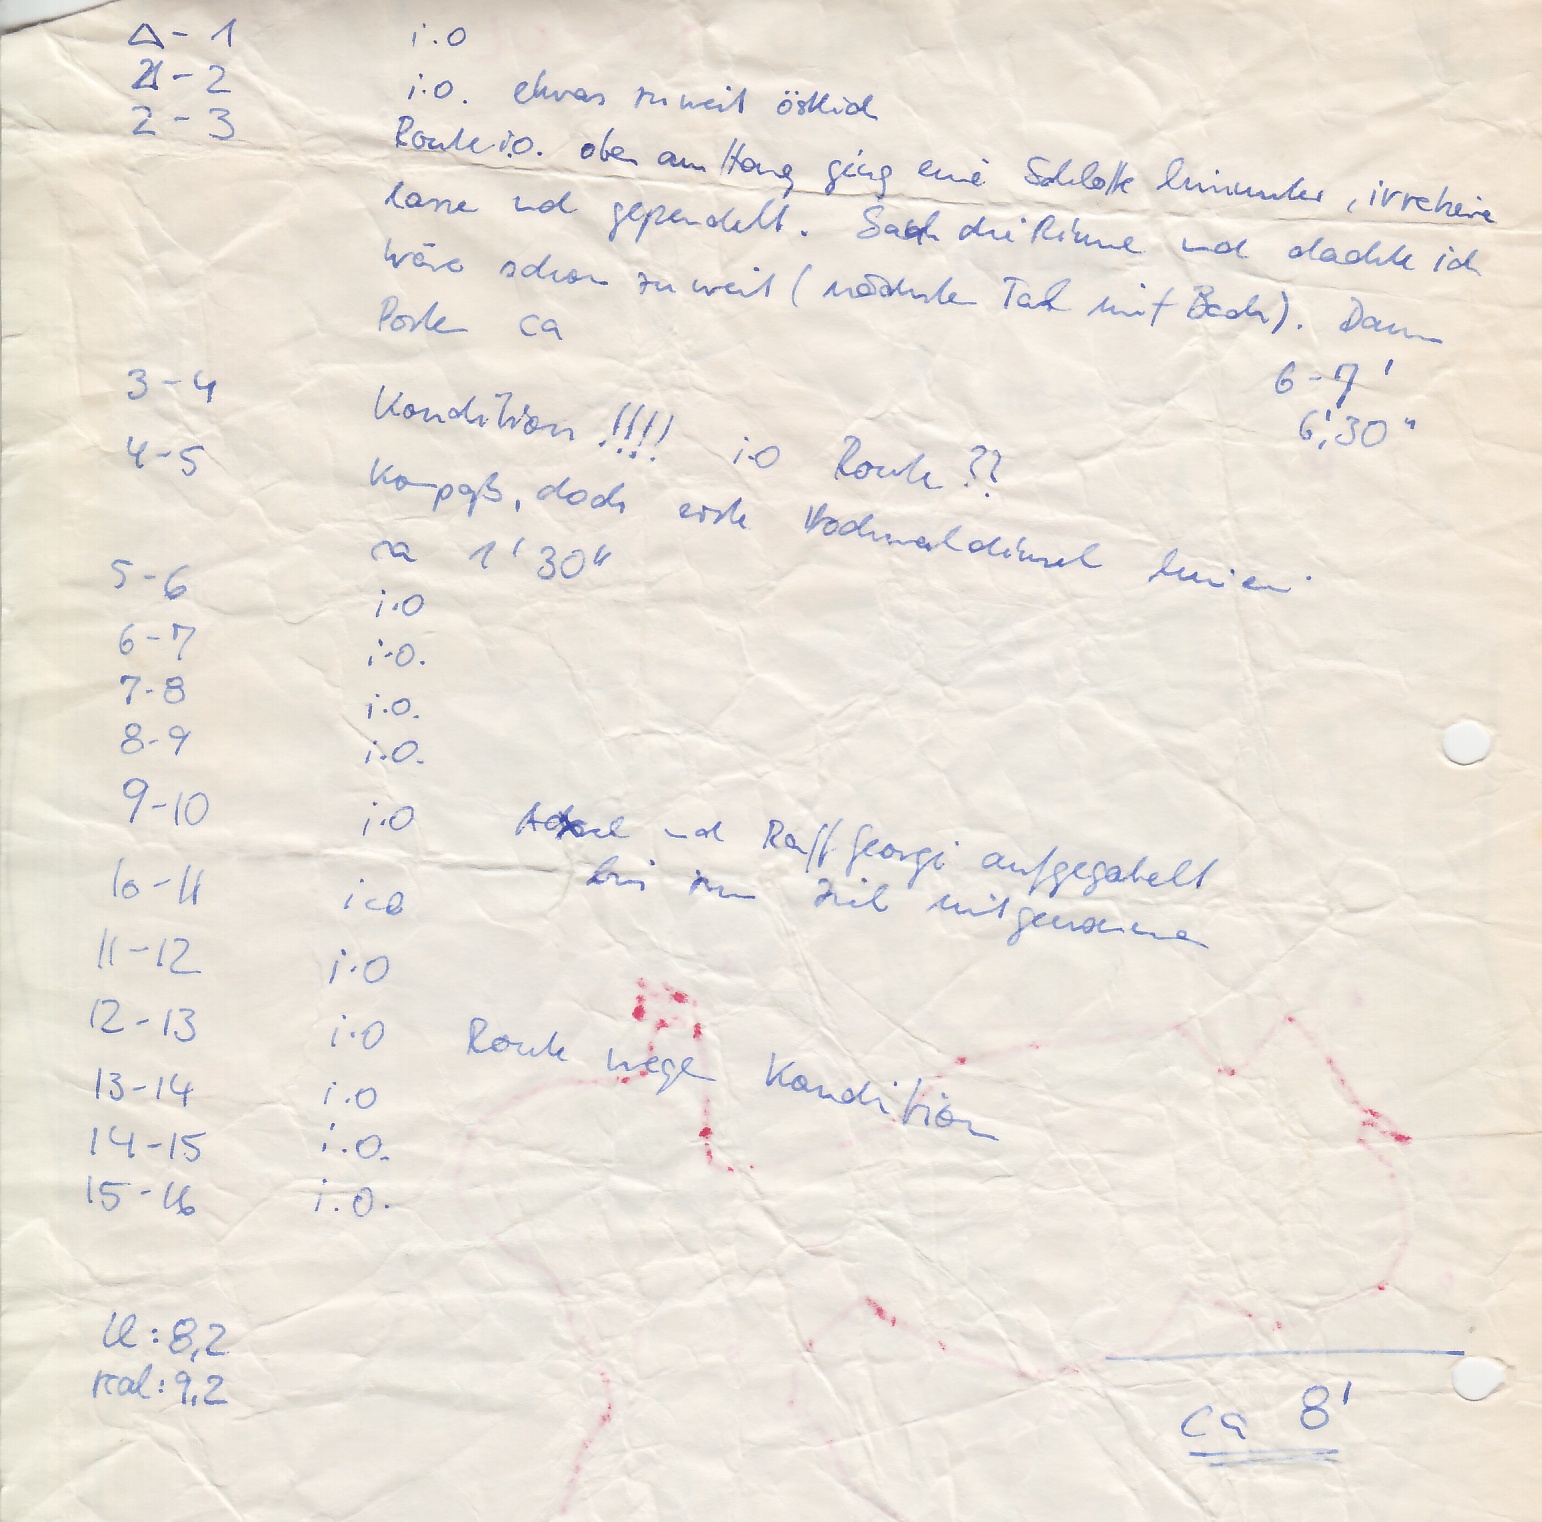 △-1 i.O
1-2 i.O. etwas zu weit östlich
2-3 Route i.O. oben am Hang ging eine hinunter, irretieren
lassen und gependelt. Sah die Rinne und dachte ich
wäre schon zu weit (nächstes Tal mit Bach). Dann
Posten ca 6-7'
3-4 Kondition !!!! i.O Route ?? 6',30"
4-5 Kompaß, doch erste Hochwaldinsel
ca 1'30"
5-6 i.O
6-7 i.O.
7-8 i.O.
8-9 i.O.
9-10 i.O und Ralf Georgi aufgegabelt
10-11 i.O bis zum Ziel mitgenommen
11-12 i.O
12-13 i.O Route wegen Kondition
13-14 i.O
14-15 i.O.
15-16 i.O.
8,2
real: 9,2
ca 8'